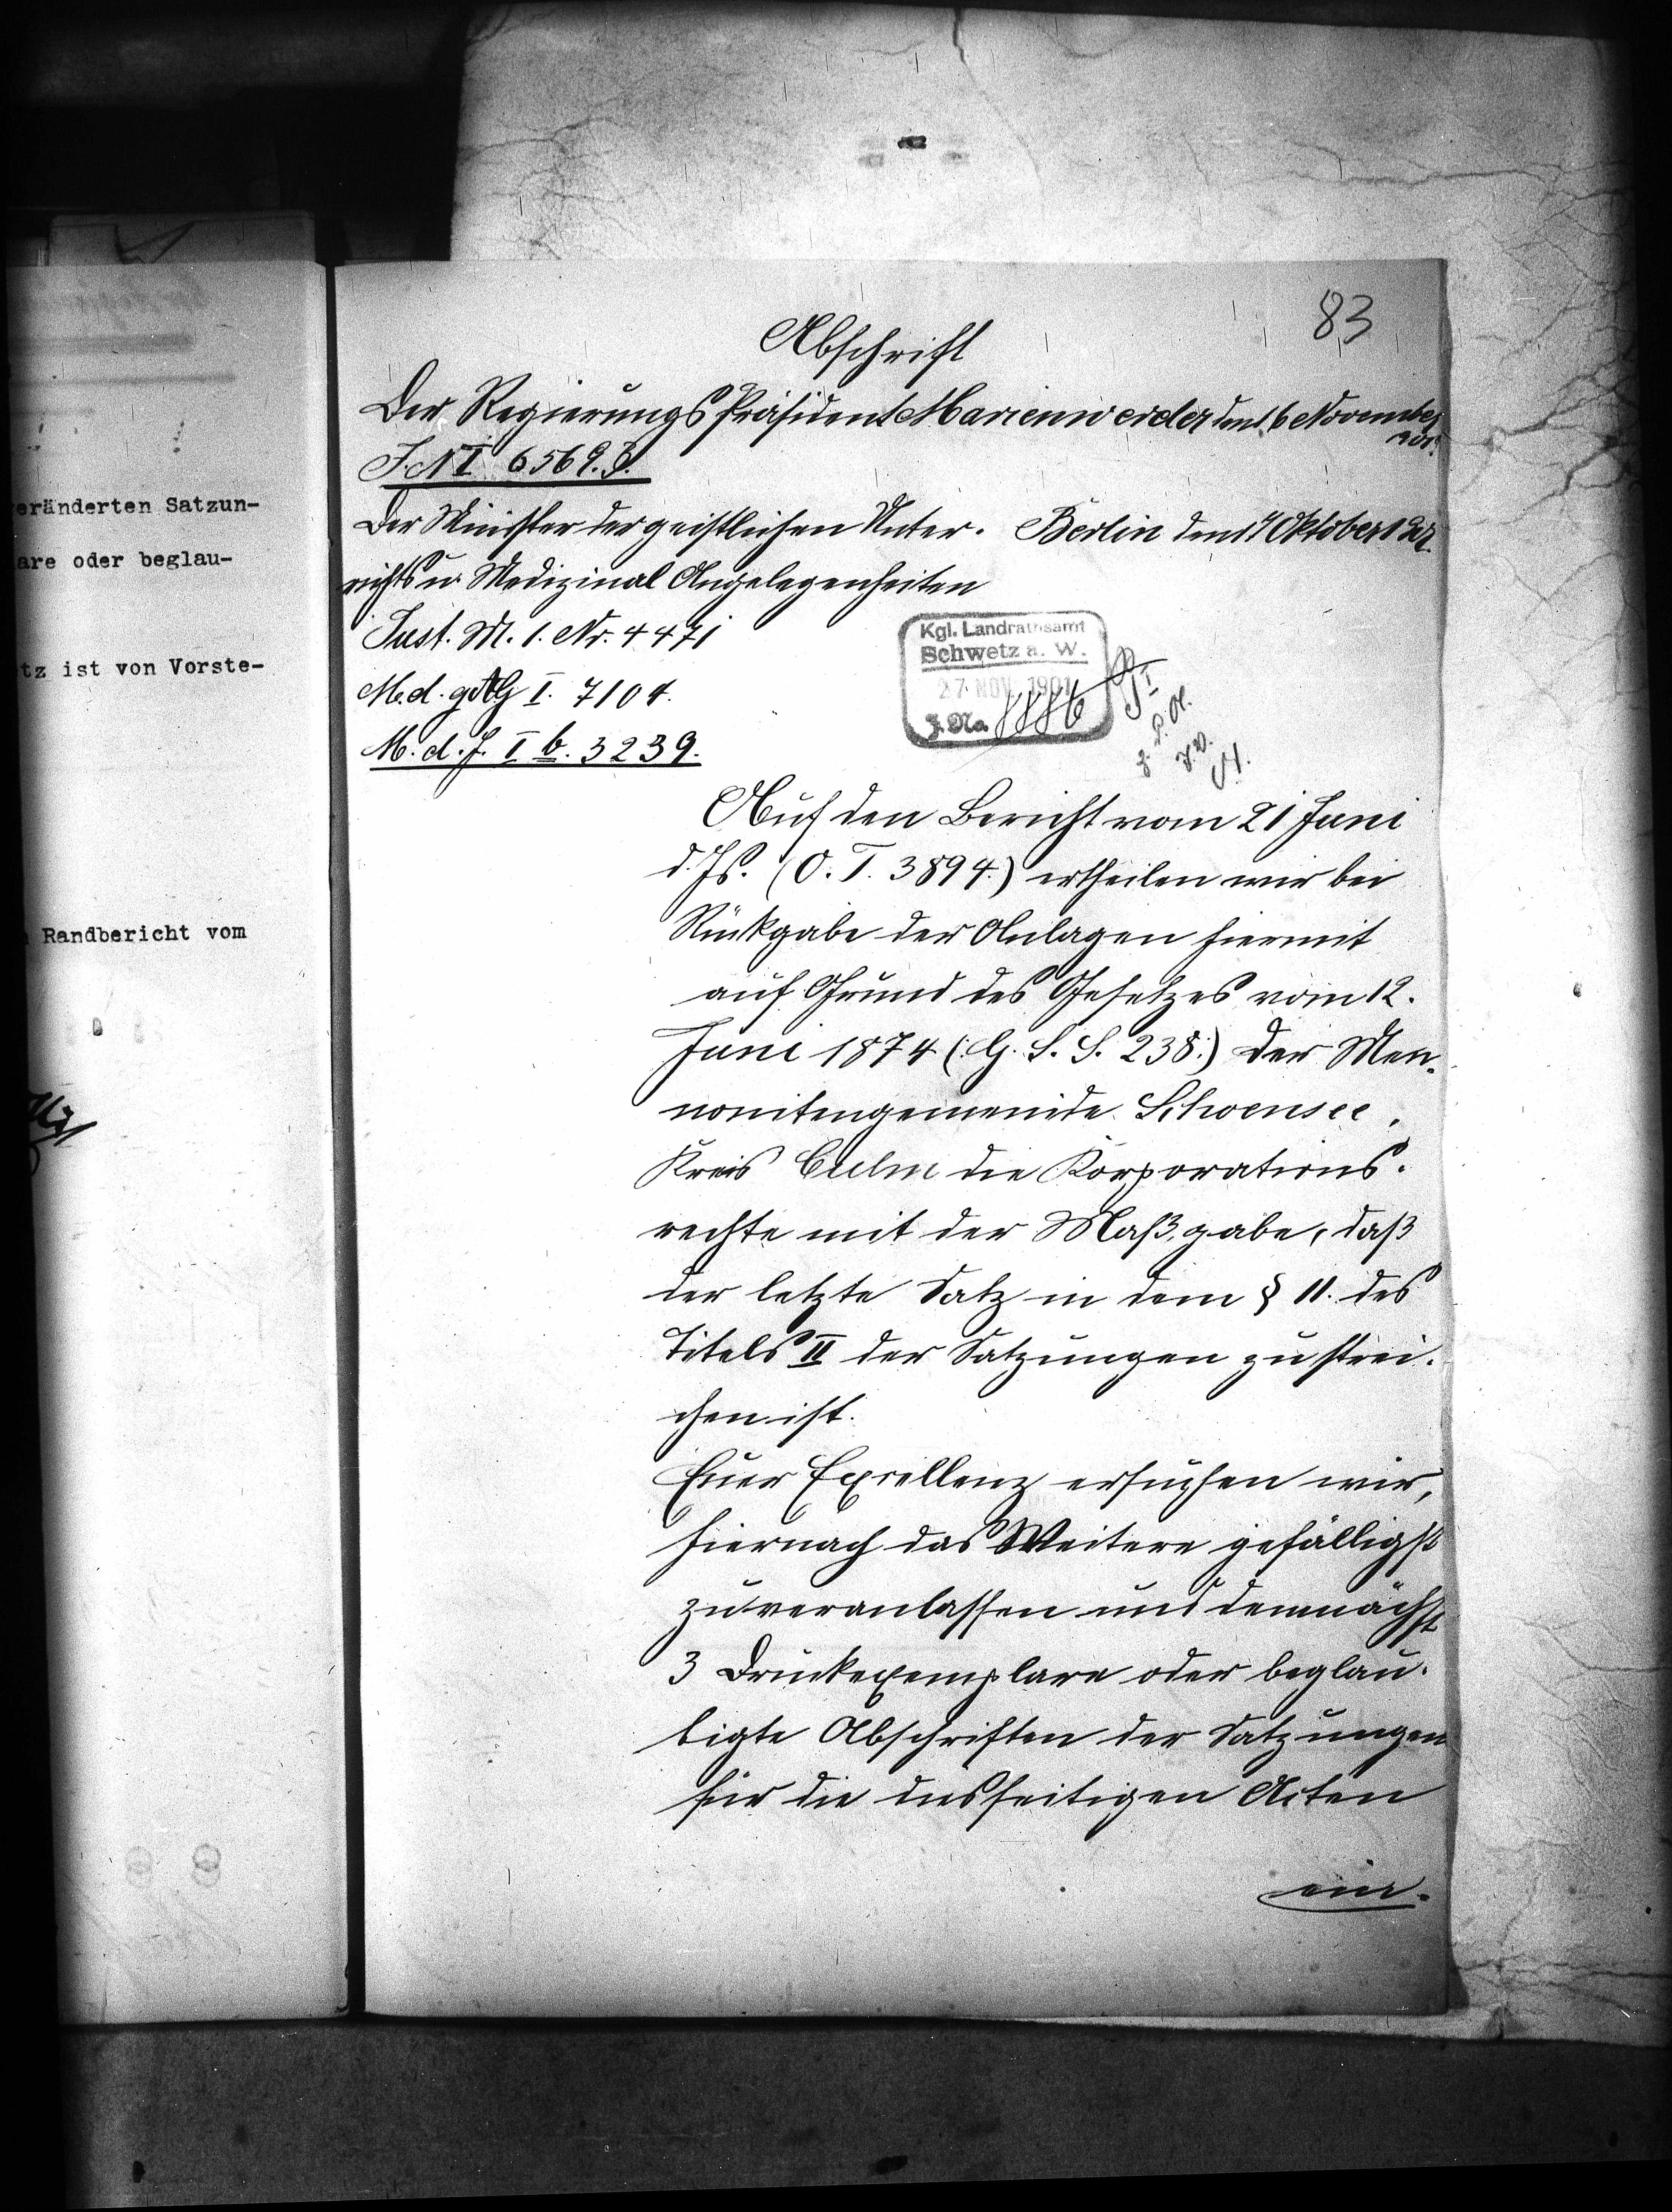 83
Abschrift
Der Regierungs Präsident Marienwerder den 16 November
J. N I 6569. J.
Der Minister der geistlichen Unter- Berlin den 4 Oktober
richts u. Medizinal Angelegenheiten
Just. M. I. Nr. 4471
M. d. g. A. G I. 7104.
M. d. J. I b. 3239.
Kgl. Landrathsamt
Schwetz a. W.
27. NOV. 1901
J. No. 8886
Auf den Bericht vom 21 Juni
d. Js. (O. P. 3894.) ertheilen wir bei
Rückgabe der Anlagen hiermit
auf Grund des Gesetzes vom 12.
Juni 1874 (: G. S. S. 238:) der Men-
nonitengemeinde Schoensee,
Kreis Culm die Korporations-
rechte mit der Maßgabe, daß
der letzte Satz in dem § 11. des
Titels II der Satzungen zu strei-
chen ist.
Euer Excellenz ersuchen wir,
hiernach das Weitere gefälligst
zu veranlassen und demnächst
3 Druckexemplare oder beglau-
bigte Abschriften der Satzungen
für die diesseitigen Acten
ein-
eränderten Satzun-
are oder beglau-
tz ist von Vorste-
Randbericht vom